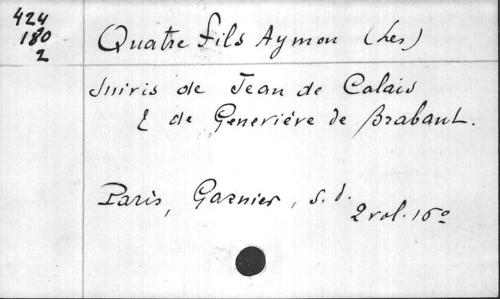 424
180
2
Quatre fils Aymon (Les)
Suivis de Jean de Calais
& de Geneviève de Brabant.
Paris, Garnier, s. d.
2 vol. 16º